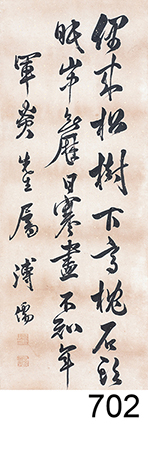 偶來松樹下高枕石頭
眠山中無曆日寒盡不知年
軍炎先生屬 溥儒
702